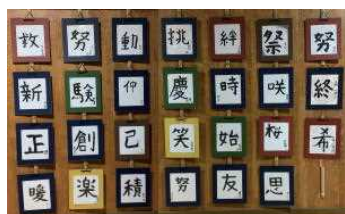 救 努 動 挑 絆 祭 努
新 験 仰 慶 時 咲 終
正 創 己 笑 始 桜 希
暖 楽 積 努 友 思